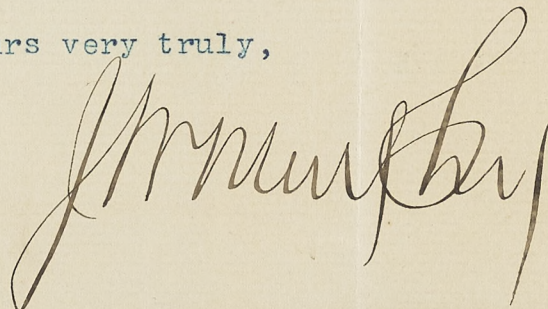 rs very truly,
J W Murphy